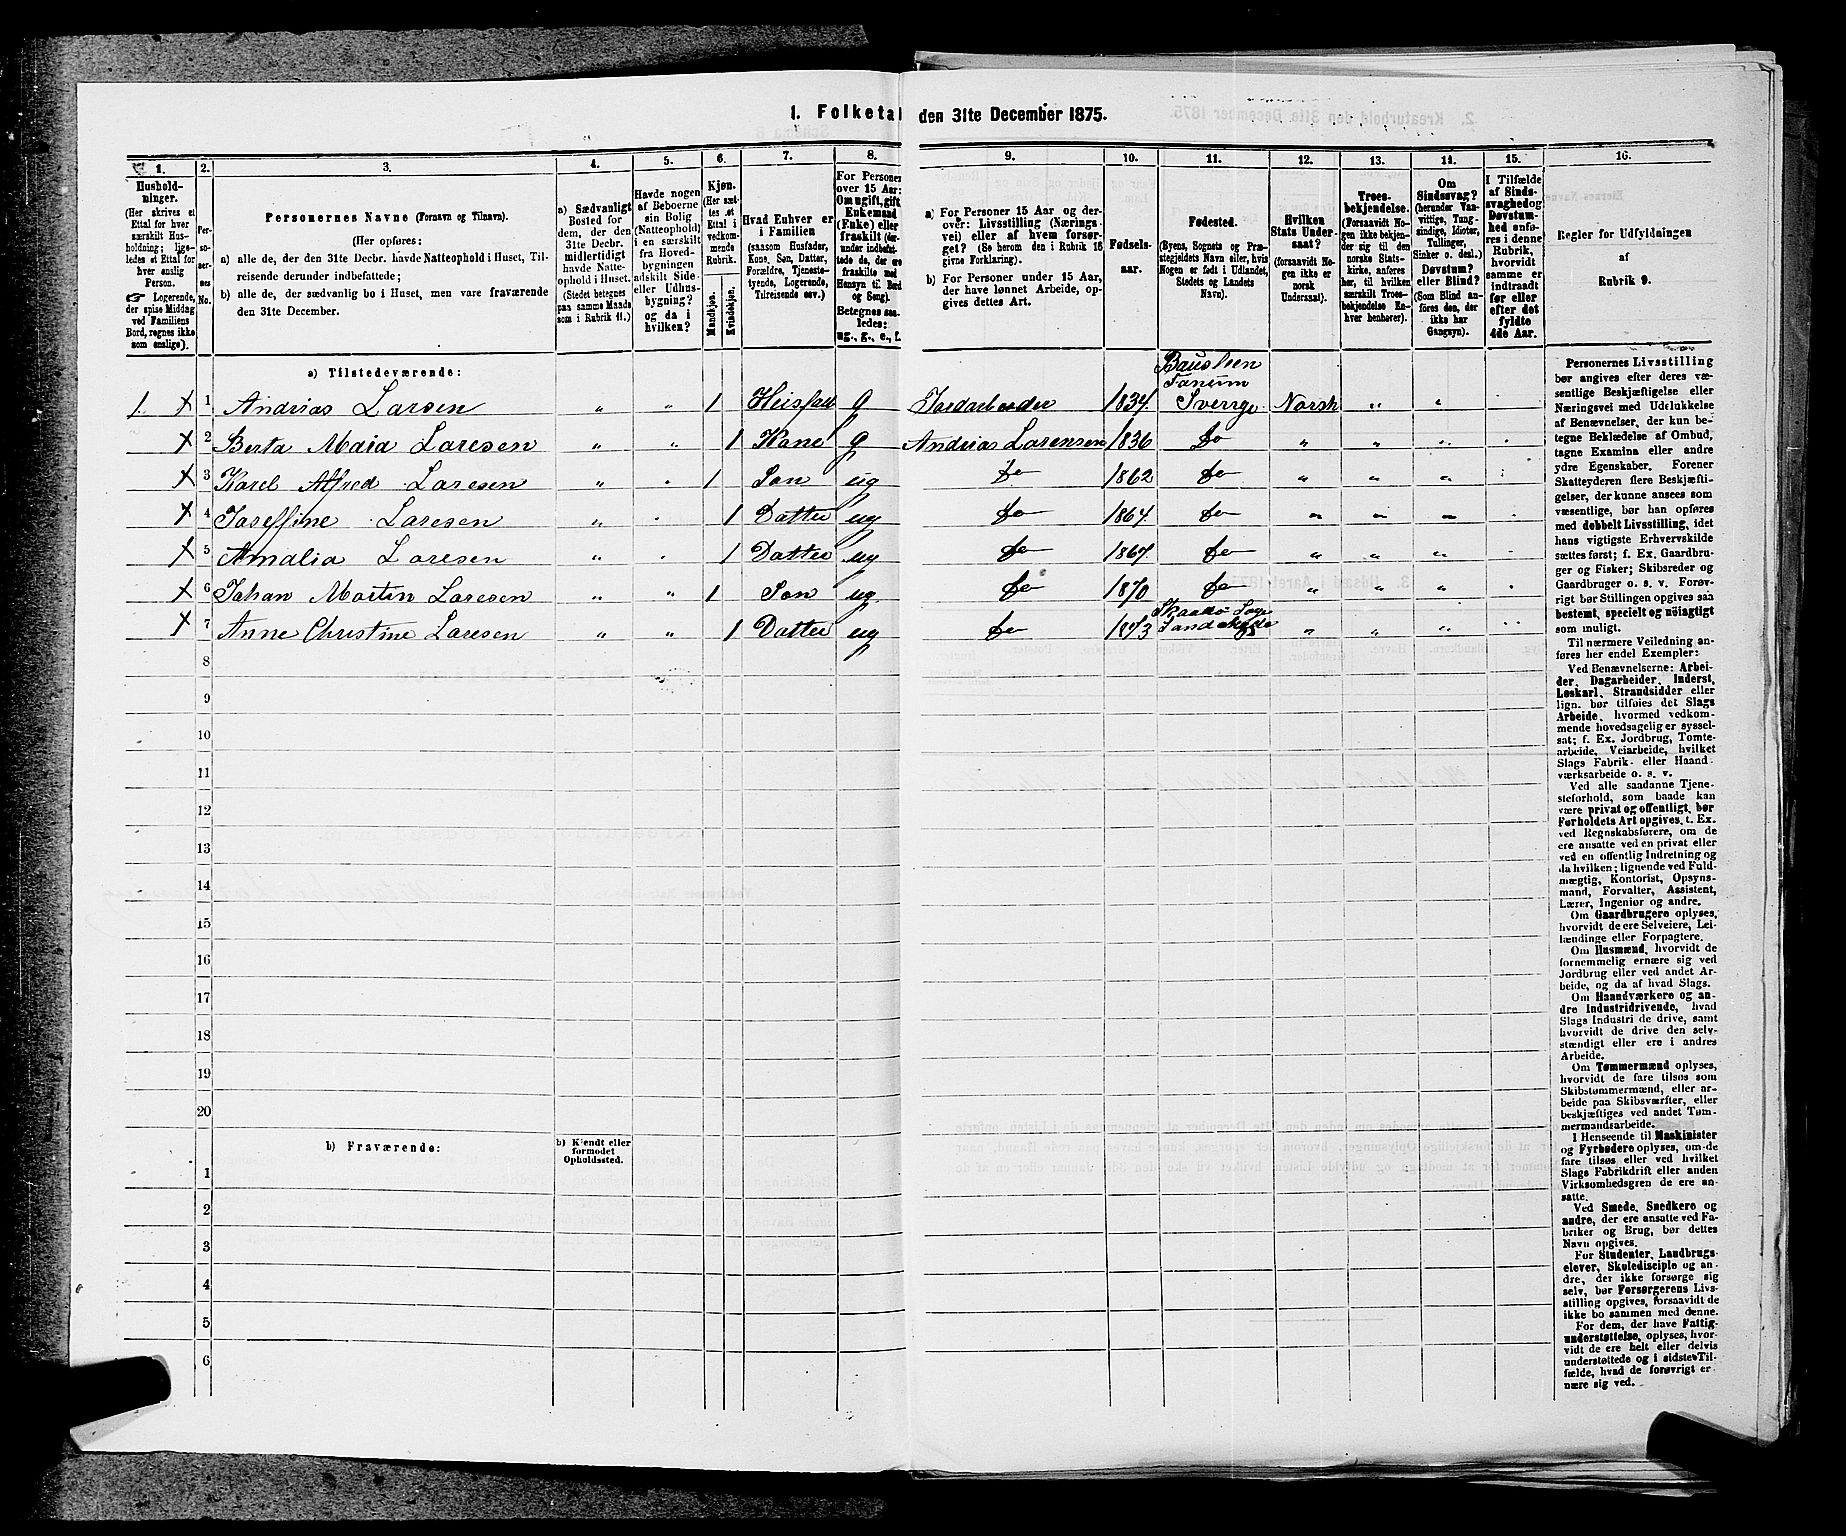 1. Folketal den 31te December 1875.
1. 2. 3. 4. 5. 6. 7. 8. 9. 10. 11. 12. 13. 14. 15. 16.
Hushold-
ninger.
(Her skrives et
Ettal for hver
særskilt Hus-
holdning; lige-
ledes et Ettal for
hver enslig
Person.
☞ Logerende,
der spise Middag
ved Familiens
Bord, regnes ikke
som enslige).
Per-
so-
ner-
nes
No.
Personernes Navne (Fornavn og Tilnavn).
(Her opføres:
a) alle de, der den 31te Decbr. havde Natteophold i Huset, Til-
reisende derunder indbefattede;
b) alle de, der sædvanlig bo i Huset, men vare fraværende
den 31te December.
a) Sædvanligt
Bosted for
dem, der den
31te Decbr.
midlertidigt
havde Natte-
ophold i Huset.
(Stedet betegnes
paa samme Maade
som i Rubrik 11.)
Havde nogen
af Beboerne
sin Bolig
(Natteophold)
i en særskilt
fra Hoved-
bygningen
adskilt Side-
eller Udhus-
bygning?
og da i
hvilken?
Kjøn.
(Her sæt-
tes et
Ettal i
vedkom-
mende
Rubrik.
Mandkjøn.
Kvindekjøn.
Hvad Enhver er
i Familien
(saasom Husfader,
Kone, Søn, Datter,
Forældre, Tjeneste-
tyende, Logerende,
Tilreisende osv.)
For Personer
over 15 Aar:
Om ugift, gift,
Enkemand
(Enke) eller
fraskilt (der-
under indbefat-
tede de, der ere
fraskilte med
Hensyn til Bord
og Seng).
Betegnes saa-
ledes:
ug., g., e., f.
a) For Personer 15 Aar og der-
over: Livsstilling (Nærings-
vei) eller af hvem forsør-
get? (Se herom den i Rubrik 16
givne Forklaring).
b) For Personer under 15 Aar,
der have lønnet Arbeide, op-
gives dettes Art.
Fødsels-
aar.
Fødested.
(Byens, Sognets og Præ-
stegjeldets Navn eller, hvis
Nogen er født i Udlandet,
Stedets og Landets
Navn).
Hvilken
Stats Under-
saat?
(forsaavidt No-
gen ikke er
norsk
Undersaat).
Troes-
bekjendelse.
(Forsaavidt No-
gen ikke bekjen-
der sig til den
norske Stats-
kirke, anføres
her, til hvilken
særskilt Troes-
bekjendelse En-
hver henhører).
Om
Sindssvag?
(herunder Van-
vittige, Tung-
sindige, Idioter,
Tullinger,
Sinker o. desl.)
Døvstum?
eller Blind?
(Som Blind an-
føres den, der
ikke har
Gangsyn).
I Tilfælde
af Sinds-
svaghed og
Døvstum-
hed anfø-
res i denne
Rubrik,
hvorvidt
samme er
indtraadt
før eller
efter det
fyldte
4de Aar.
Regler for Udfyldningen
af
Rubrik 9.
a) Tilstedeværende:
Fanum
1. x 1 Andrias Larsen „ „ 1 g Jordarbeider 1834. Sverrge Norsk „ „
x 2 Berta Maia Laresen „ „ 1 Kone g Andrias Larensen 1836 do „ „ „
x 3 Karel Alfred Laresen „ „ 1 Søn ug do 1862 do „ „ „
x 4 Joseffine Laresen „ „ 1 Datter ug do 1864. do „ „ „
x 5 Amalia Laresen „ „ 1 Datter ug do 1867 do „ „ „
x 6 Johan Martin Laresen „ „ 1 Søn ug do 1870 do „ „ „
x 7 Anne Christine Laresen „ „ 1 Datter ug do 1873 „ „ „
8
9
10
11
12
13
14
15
16
17
18
19
20
b) Fraværende:
b) Kjendt eller
formodet
Opholdssted.
1
2
3
4
5
6
Personernes Livsstilling
bør angives efter deres væ-
sentlige Beskjæftigelse eller
Næringsvei med Udelukkelse
af Benævnelser, der kun be-
tegne Beklædelse af Ombud,
tagne Examina eller andre
ydre Egenskaber. Forener
Skatteyderen flere Beskjæfti-
gelser, der kunne ansees som
væsentlige, bør han opføres
med dobbelt Livsstilling, idet
hans vigtigste Erhvervskilde
sættes først; f. Ex. Gaardbru-
ger og Fisker; Skibsreder og
Gaardbruger o. s. v. Forøv-
rigt bør Stillingen opgives saa
bestemt, specielt og nöiagtigt
som muligt.
Til nærmere Veiledning an-
føres her endel Exempler:
Ved Benævnelserne: Arbei-
der, Dagarbeider, Inderst,
Løskarl, Strandsidder eller
lign. bør tilføies det Slags
Arbeide, hvormed vedkom-
mende hovedsagelig er syssel-
sat; f. Ex. Jordbrug, Tomte-
arbeide, Veiarbeide, hvilket
Slags Fabrik- eller Haand-
værksarbeide o. s. v.
Ved alle saadanne Tjene-
steforhold, som baade kan
være privat og offentligt, bør
Forholdets Art opgives, t. Ex.
ved Regnskabsførere, om de
ere ansatte ved en privat eller
ved en offentlig Indretning og
da hvilken; lignende ved Fuld-
mægtig, Kontorist, Opsyns-
mand, Forvalter, Assistent,
Lærer, Ingeniør og andre.
Om Gaardbrugere oplyses,
hvorvidt de ere Selveiere, Lei-
lændinge eller Forpagtere.
Om Husmænd, hvorvidt de
fornemmelig ernære sig ved
Jordbrug eller ved andet Ar-
beide, og da af hvad Slags.
Om Haandværkere og an-
dre Industridrivende, hvad
Slags Industri de drive, samt
hvorvidt de drive den selv-
stændigt eller ere i andres
Arbeide.
Om Tømmermænd oplyses,
hvorvidt de fare tilsøs som
Skibstømmermænd, eller ar-
beide paa Skibsværfter, eller
beskjæftiges ved andet Tøm-
mermandsarbeide.
I Henseende til Maskinister
og Fyrbødere oplyses, om de
fare tilsøs eller ved hvilket
Slags Fabrikdrift eller anden
Virksomhedsgren de ere an-
satte.
Ved Smede, Snedkere og
andre, der ere ansatte ved Fa-
briker og Brug, bør dettes
Navn opgives.
For Studenter, Landbrugs-
elever, Skoledisciple og an-
dre, der ikke forsørge sig
selv, bør Forsørgerens Livs-
stilling opgives, forsaavidt de
ikke bo sammen med denne.
For dem, der have Fattig-
understøttelse, oplyses, hvor-
vidt de ere helt eller delvis
understøttede og i sidste Til-
fælde, hvad de forøvrigt er-
nære sig ved.